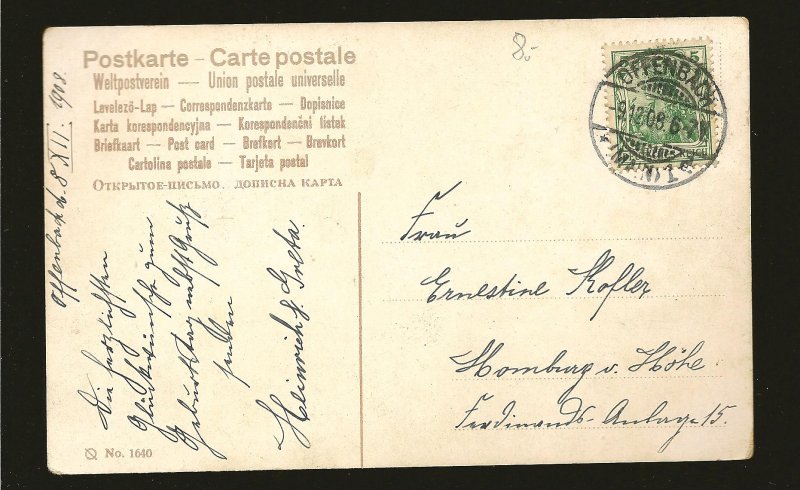 Postkarte – Carte postale
Weltpostverein — Union postale universelle
Levelező-Lap — Correspondenzkarte — Dopisnice
Karta korespondencyjna — Korespondenční lístek
Briefkaart — Post card — Brefkort — Brevkort
Cartolina postale — Tarjeta postal
Открытое-письмо. дописна карта
8.-
5
OFFENBACH
9.12.08. 6-7
(MAIN) 1
Offenbach d. 8 XII. 1908.
Die herzlichsten
Glückwünsche zum
Geburtstag nebst Gruß
senden
Heinrich & Greta.
Frau
Ernestine Kofler
Homburg v. Höhe
Ferdinands-Anlage 15.
No. 1640